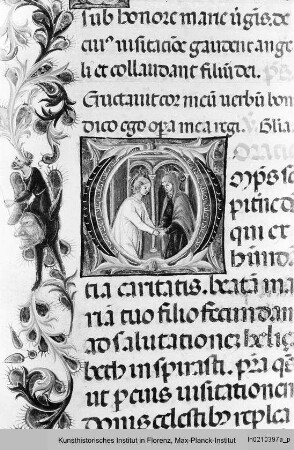 sub honore marie ūgīs. de
cui' uisitatiōe gaudent ange
li et collaudant filiū dei. ps.
Eructauit cor meū uerbū bon
dico ego opera mea regi. V. Glia.
Oratio
Omps se
piterne d
qui et
habūdā
tia caritatis. beatam ma
riā tuo filio fecundam
ad salutationē helis
beth inspirasti. p̄sta q̄s
ut per eius uisitationem
donis celestibus replea
Kunsthistorisches Institut in Florenz, Max-Planck-Institut
ln0210397a_p